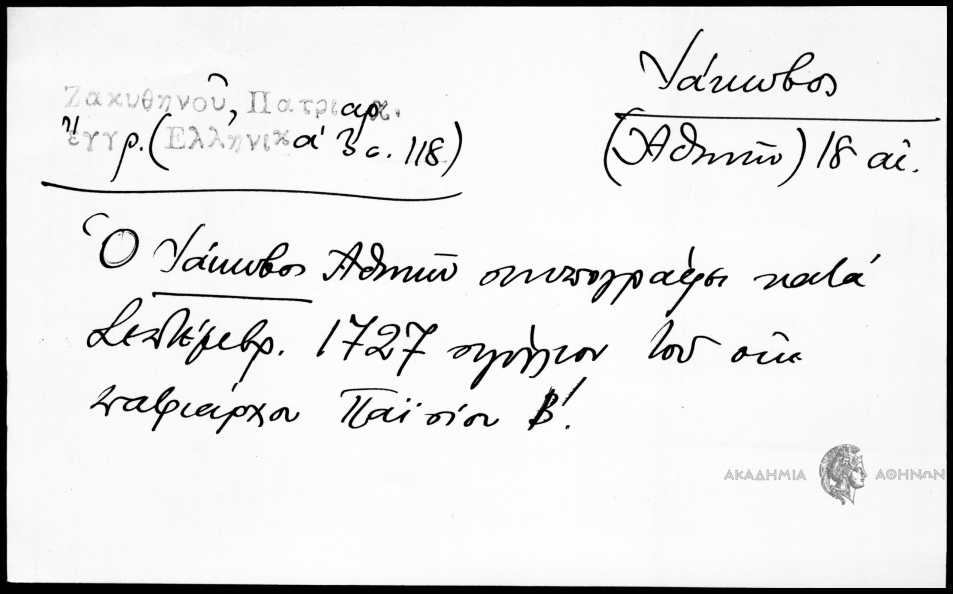 Ἰάκωβος
(Ἀθηνῶν) 18 αἰ.
Ζακυθηνοῦ, Πατριαρχ.
ἔγγρ. (Ἑλληνικά 3 σ. 118)
Ὁ Ἰάκωβος Ἀθηνῶν συνυπογράφει κατά
Σεπτέμβρ. 1727 σιγίλλιον τοῦ οἰκ
πατριάρχου Παϊσίου Β΄.
ΑΚΑΔΗΜΙΑ ΑΘΗΝΩΝ